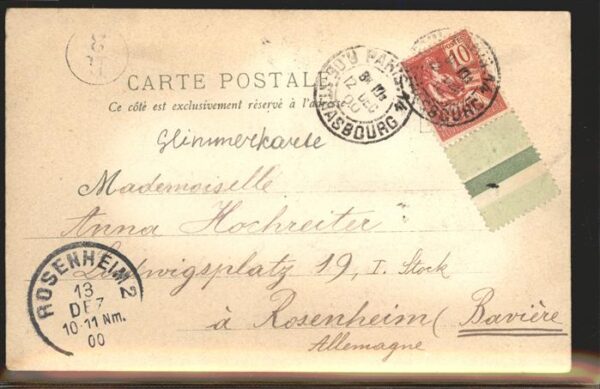 CARTE POSTALE
Ce côté est exclusivement réservé à l'adresse
Glimmerkarte
Mademoiselle
Anna Hochreiter
Ludwigsplatz 19, I. Stock
à Rosenheim (Bavière
Allemagne
PARIS
12 DEC
00
STRASBOURG
POSTES
10
ROSENHEIM 2
13
DEZ
10-11 Nm.
00